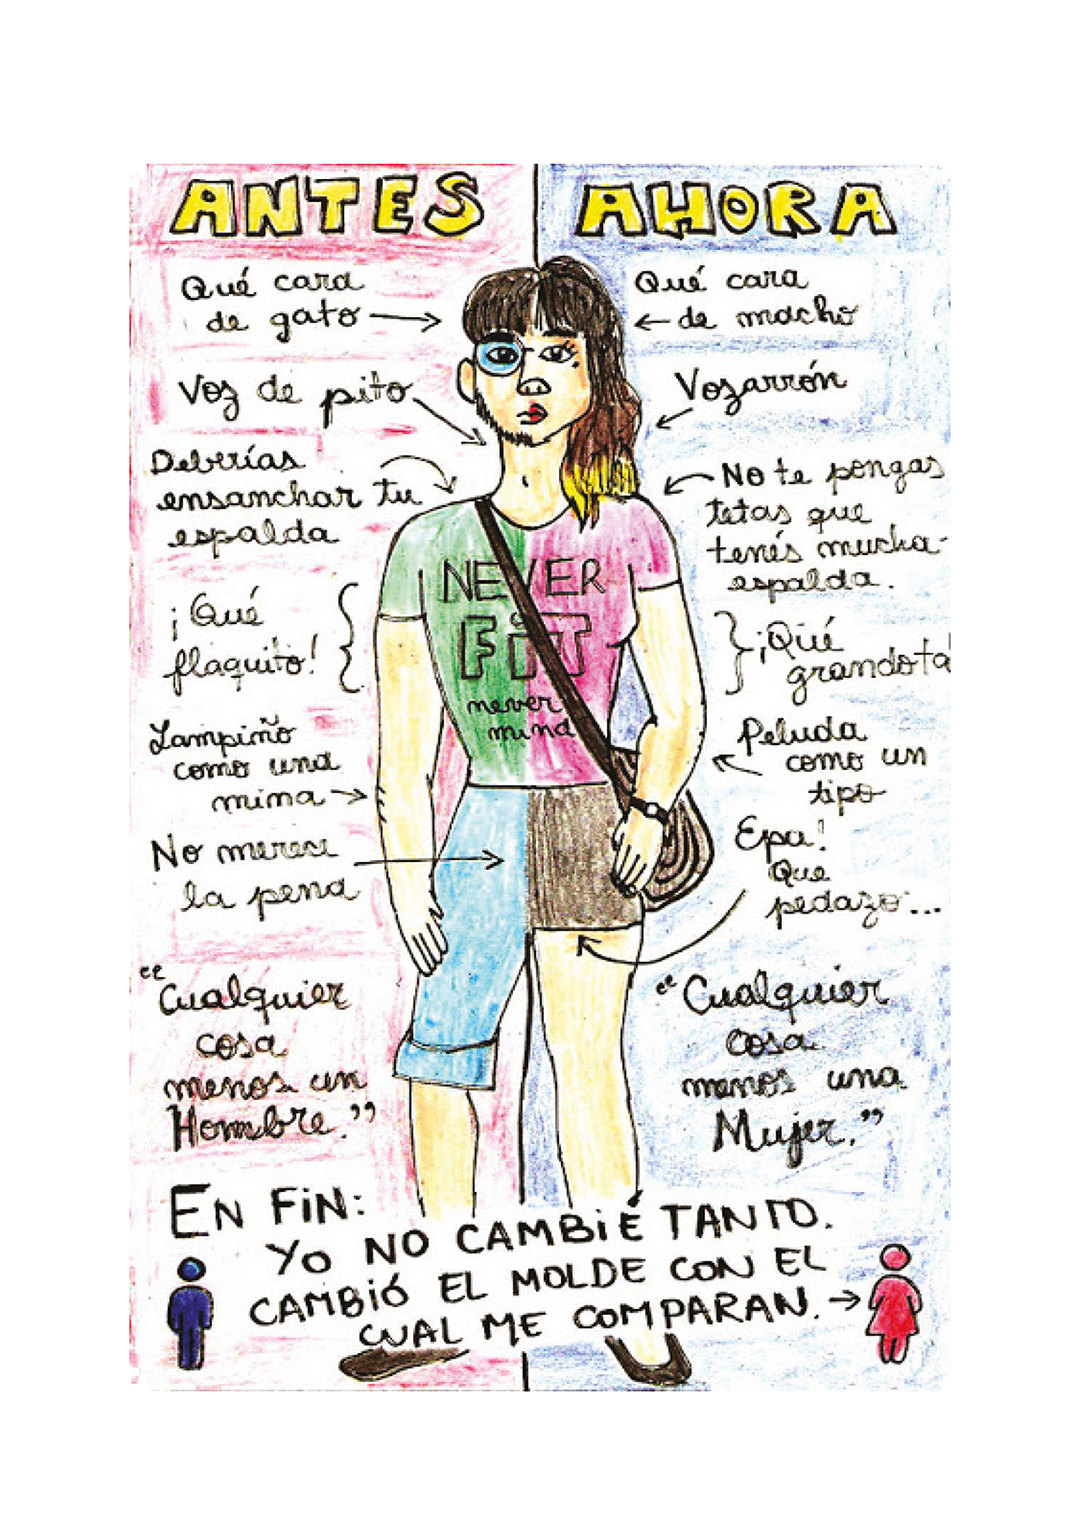 ANTES
Qué cara
de gato
Voz de pito
Deberías
ensanchar tu
espalda
¡Qué
flaquito!
Lampiño
como una
mina
No merece
la pena
"Cualquier
cosa
menos un
Hombre."
AHORA
Qué cara
de macho
Vozarrón
No te pongas
tetas que
tenés mucha
espalda.
¡Qué
grandota!
Peluda
como un
tipo
Epa!
Que
pedazo...
"Cualquier
cosa
menos una
Mujer."
NEVER
FiT
never
mind
EN FiN:
YO NO CAMBiÉ TANTO.
CAMBIÓ EL MOLDE CON EL
CUAL ME COMPARAN.